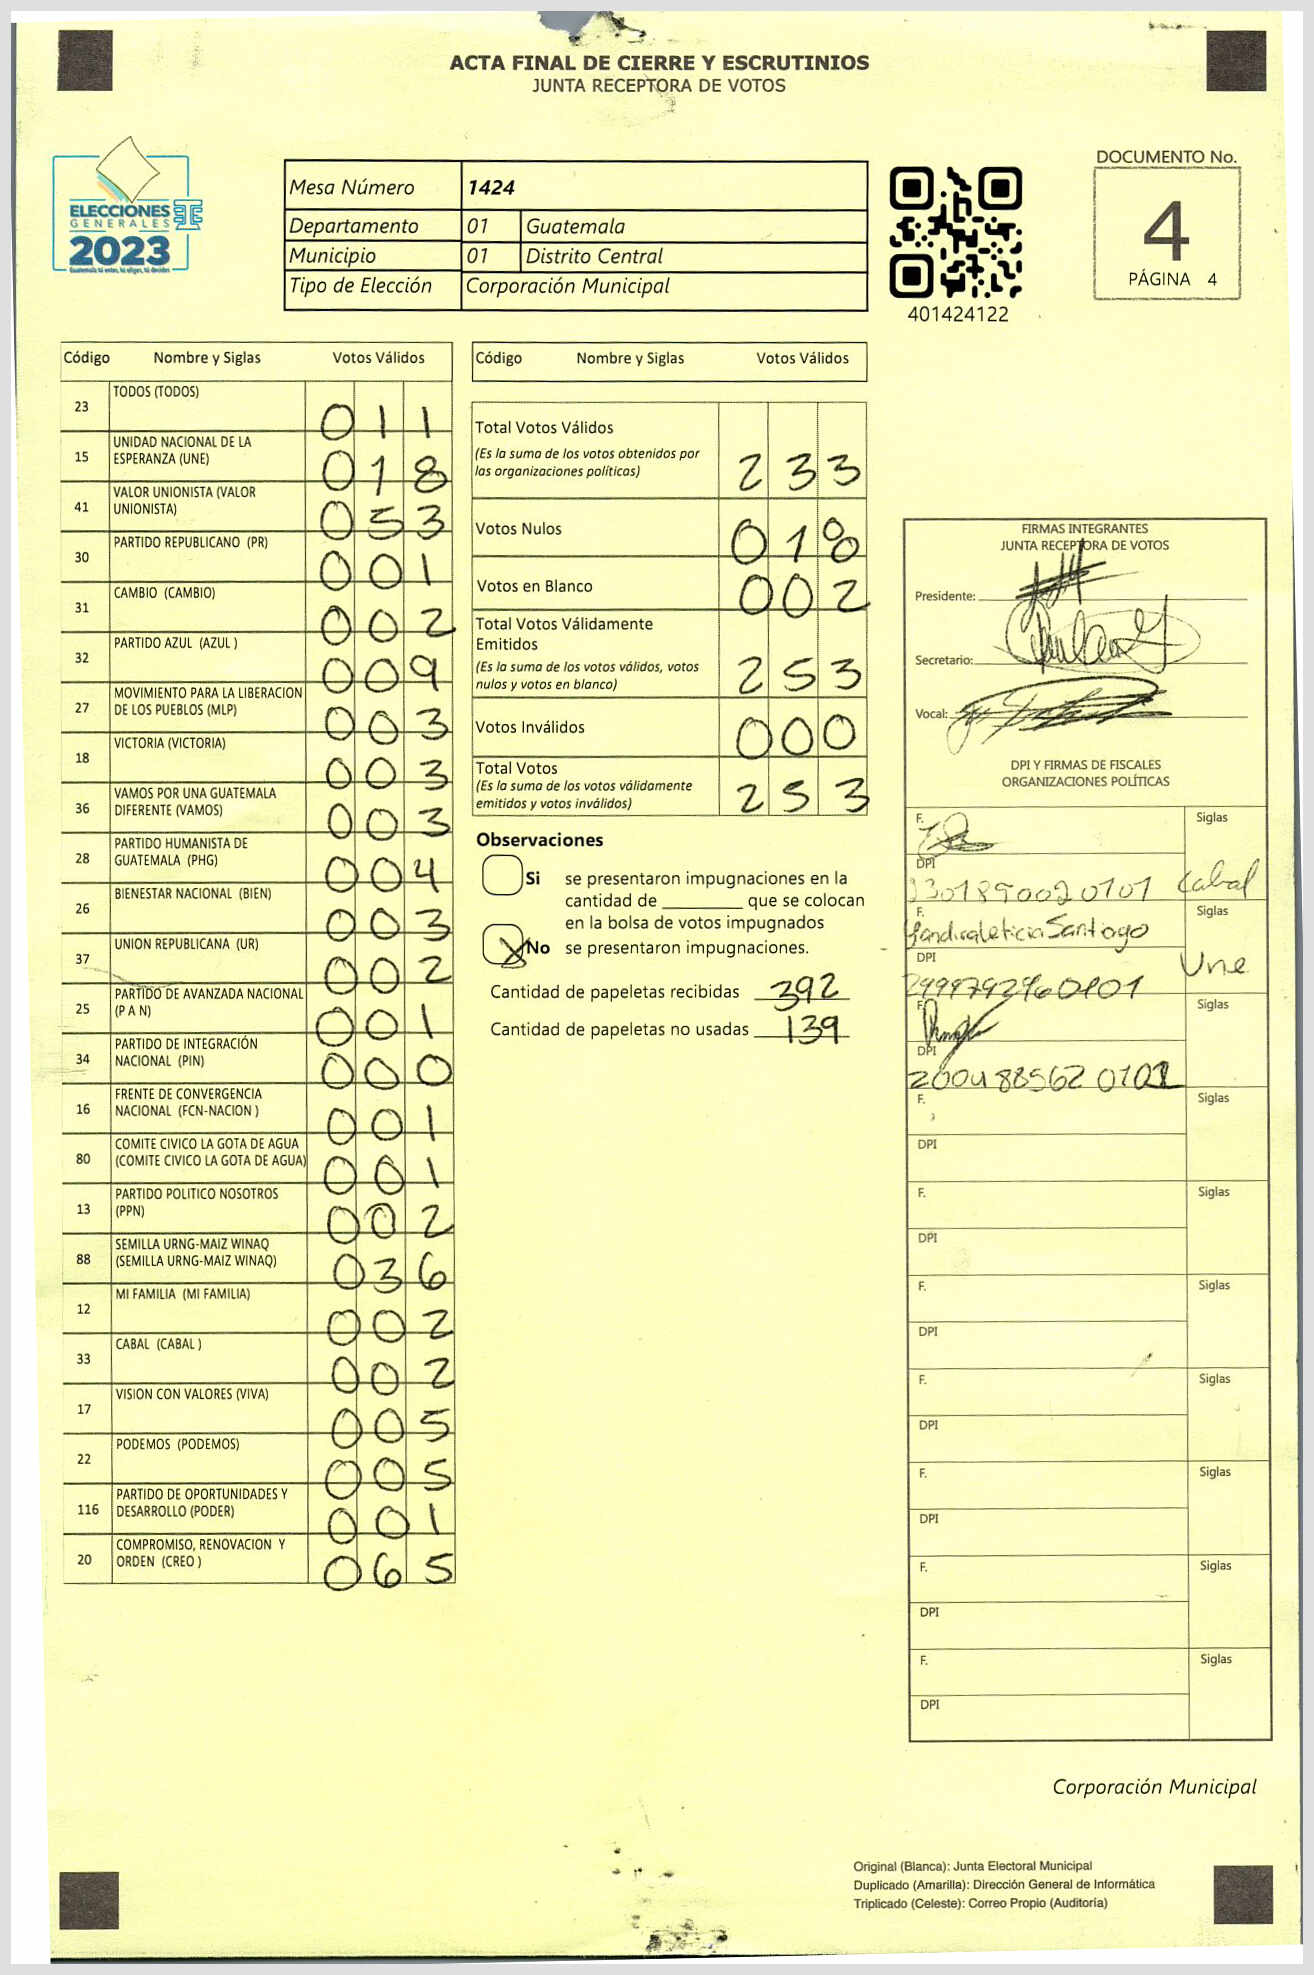 ACTA FINAL DE CIERRE Y ESCRUTINIOS
JUNTA RECEPTORA DE VOTOS
ELECCIONES
GENERALES
2023
Guatemala tú votas, tú eliges, tú decides
Mesa Número 1424
Departamento 01 Guatemala
Municipio 01 Distrito Central
Tipo de Elección Corporación Municipal
401424122
DOCUMENTO No.
4
PÁGINA 4
Código Nombre y Siglas Votos Válidos
23 TODOS (TODOS) 011
15 UNIDAD NACIONAL DE LA
ESPERANZA (UNE) 018
41 VALOR UNIONISTA (VALOR
UNIONISTA) 053
30 PARTIDO REPUBLICANO (PR) 001
31 CAMBIO (CAMBIO) 002
32 PARTIDO AZUL (AZUL ) 009
27 MOVIMIENTO PARA LA LIBERACION
DE LOS PUEBLOS (MLP) 003
18 VICTORIA (VICTORIA) 003
36 VAMOS POR UNA GUATEMALA
DIFERENTE (VAMOS) 003
28 PARTIDO HUMANISTA DE
GUATEMALA (PHG) 004
26 BIENESTAR NACIONAL (BIEN) 003
37 UNION REPUBLICANA (UR) 002
25 PARTIDO DE AVANZADA NACIONAL
(P A N) 001
34 PARTIDO DE INTEGRACIÓN
NACIONAL (PIN) 000
16 FRENTE DE CONVERGENCIA
NACIONAL (FCN-NACION ) 001
80 COMITE CIVICO LA GOTA DE AGUA
(COMITE CIVICO LA GOTA DE AGUA) 001
13 PARTIDO POLITICO NOSOTROS
(PPN) 002
88 SEMILLA URNG-MAIZ WINAQ
(SEMILLA URNG-MAIZ WINAQ) 036
12 MI FAMILIA (MI FAMILIA) 002
33 CABAL (CABAL ) 002
17 VISION CON VALORES (VIVA) 005
22 PODEMOS (PODEMOS) 005
116 PARTIDO DE OPORTUNIDADES Y
DESARROLLO (PODER) 001
20 COMPROMISO, RENOVACION Y
ORDEN (CREO ) 065
Código Nombre y Siglas Votos Válidos
Total Votos Válidos
(Es la suma de los votos obtenidos por
las organizaciones políticas) 233
Votos Nulos 018
Votos en Blanco 002
Total Votos Válidamente
Emitidos
(Es la suma de los votos válidos, votos
nulos y votos en blanco) 253
Votos Inválidos 000
Total Votos
(Es la suma de los votos válidamente
emitidos y votos inválidos) 253
Observaciones
Si se presentaron impugnaciones en la
cantidad de ________ que se colocan
en la bolsa de votos impugnados
X No se presentaron impugnaciones.
Cantidad de papeletas recibidas 392
Cantidad de papeletas no usadas 139
FIRMAS INTEGRANTES
JUNTA RECEPTORA DE VOTOS
Presidente:
Secretario:
Vocal:
DPI Y FIRMAS DE FISCALES
ORGANIZACIONES POLÍTICAS
F. Siglas
DPI Cabal
F. Santiago Siglas
DPI Une
F. Siglas
DPI
F. Siglas
DPI
F. Siglas
DPI
F. Siglas
DPI
F. Siglas
DPI
F. Siglas
DPI
F. Siglas
DPI
F. Siglas
DPI
Corporación Municipal
Original (Blanca): Junta Electoral Municipal
Duplicado (Amarilla): Dirección General de Informática
Triplicado (Celeste): Correo Propio (Auditoría)